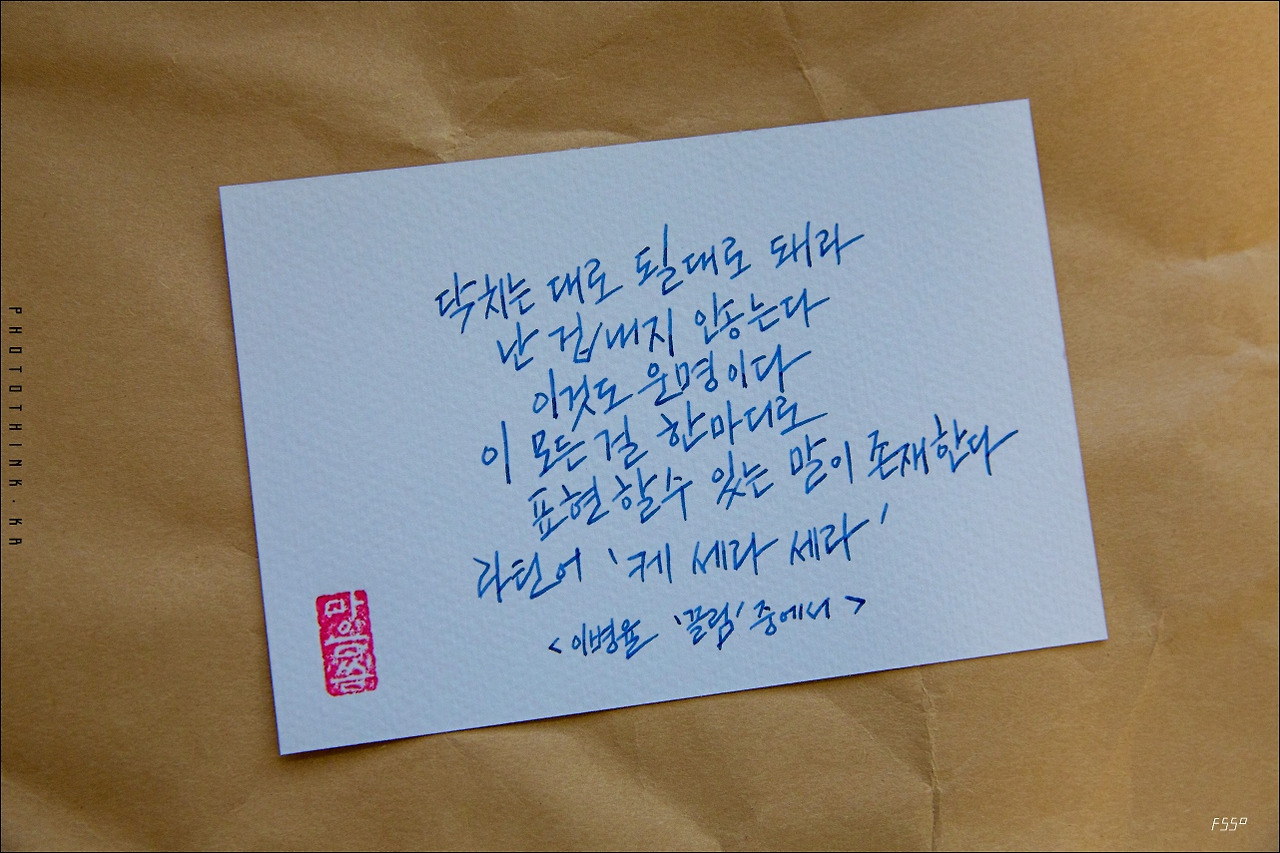 닥치는 대로 될대로 돼라
난 겁내지 안송는다
이것도 운명이다
이 모든걸 한마디로
표현할수 있는 말이 존재한다
라틴어 '케 세라 세라'
<이병율 '끌림' 중에서>
PHOTOTHINK·KA
FSSO